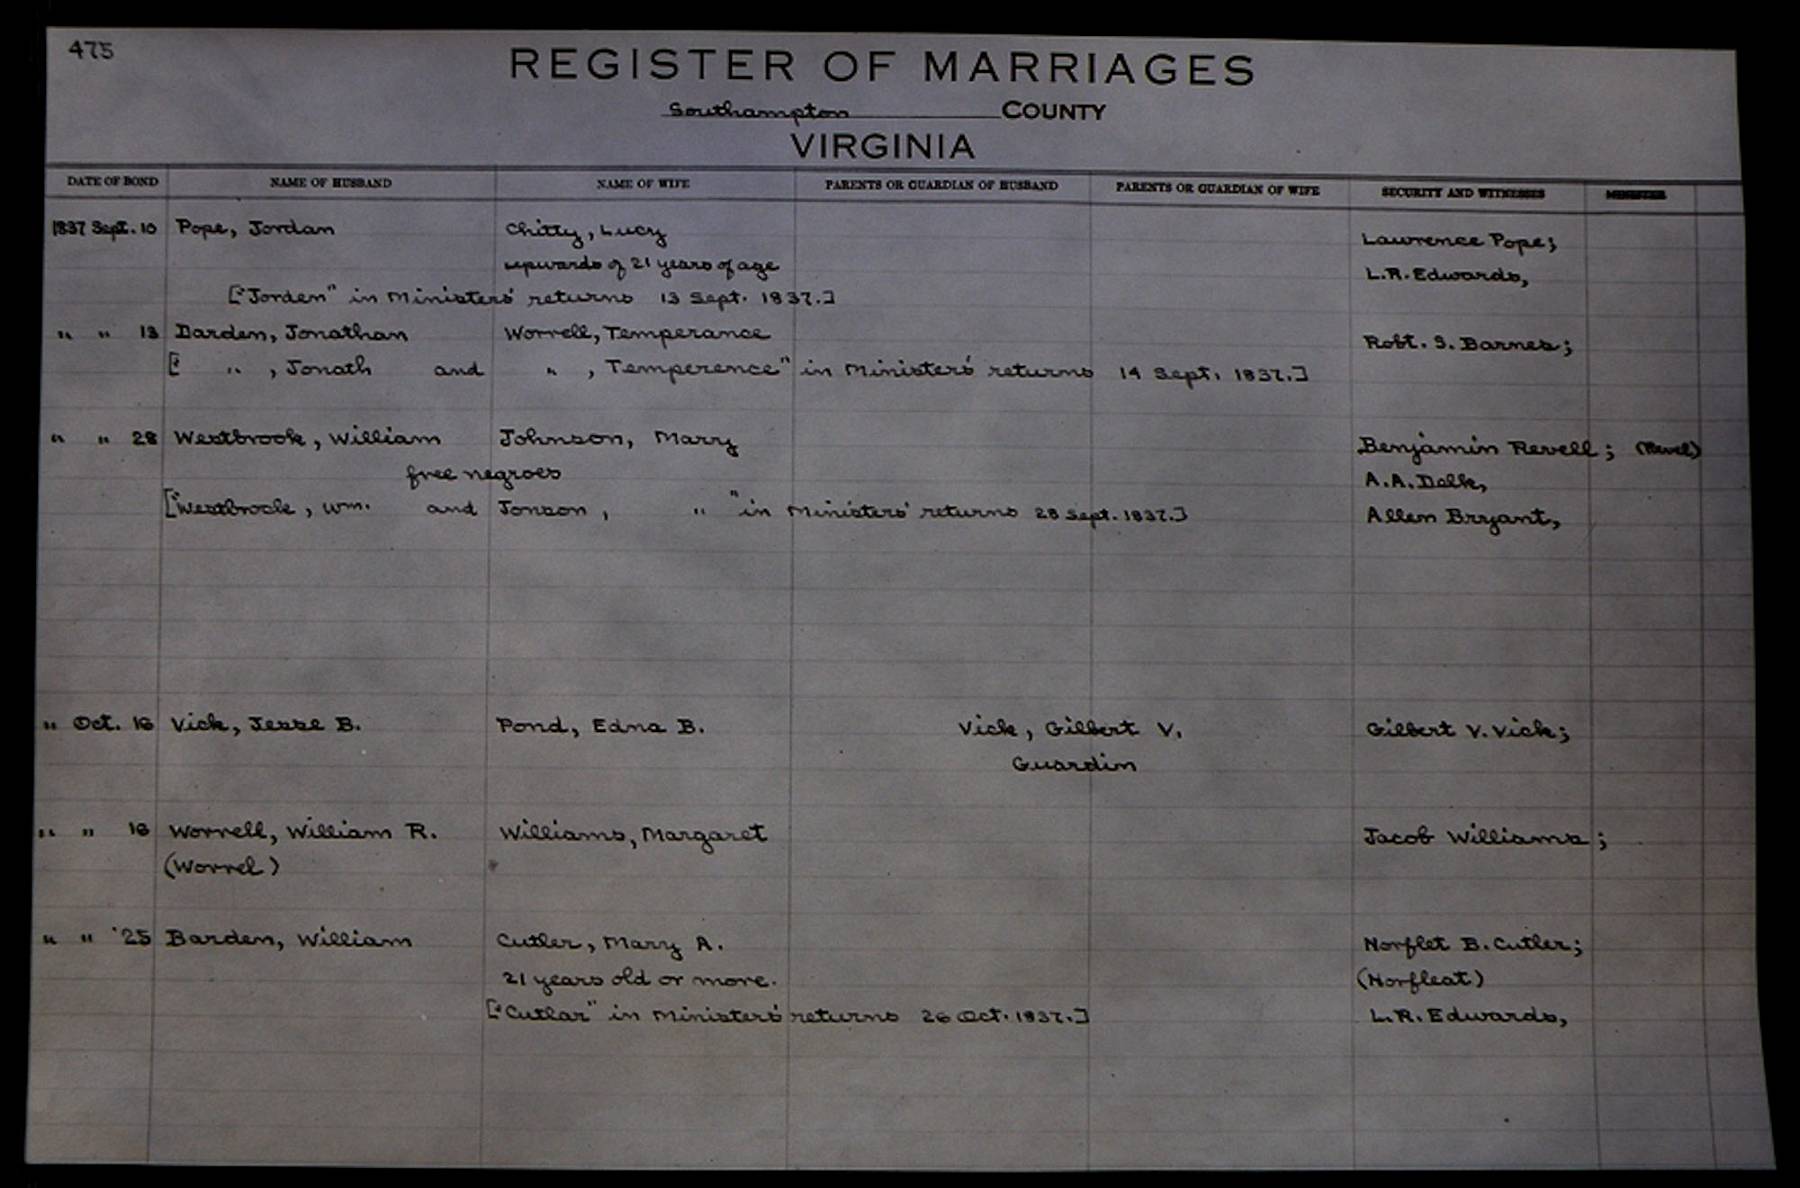 475
REGISTER OF MARRIAGES
Southampton COUNTY
VIRGINIA
DATE OF BOND NAME OF HUSBAND NAME OF WIFE PARENTS OR GUARDIAN OF HUSBAND PARENTS OR GUARDIAN OF WIFE SECURITY AND WITNESSES MINISTER
1837 Sept. 10 Pope, Jordan Chitty, Lucy Lawrence Pope;
upwards of 21 years of age L.R. Edwards,
["Jorden" in Ministers' returns 13 Sept. 1837.]
" " 13 Darden, Jonathan Worrell, Temperance Robt. S. Barnes;
[" " , Jonath and " , Temperence" in Ministers' returns 14 Sept. 1837.]
" " 28 Westbrook, William Johnson, Mary Benjamin Revell; (Revel)
free negroes A.A. Dolk,
["Westbrock, Wm. and Jonson, " " in Ministers' returns 28 Sept. 1837.] Allen Bryant,
" Oct. 16 Vick, Jesse B. Pond, Edna B. Vick, Gilbert V. Gilbert V. Vick;
Guardin
" " 16 Worrell, William R. Williams, Margaret Jacob Williams;
(Worrel)
" " 25 Barden, William Cutler, Mary A. Norflet B. Cutler;
21 years old or more. (Norfleat)
["Cutlar" in Ministers' returns 26 Oct. 1837.] L.R. Edwards,